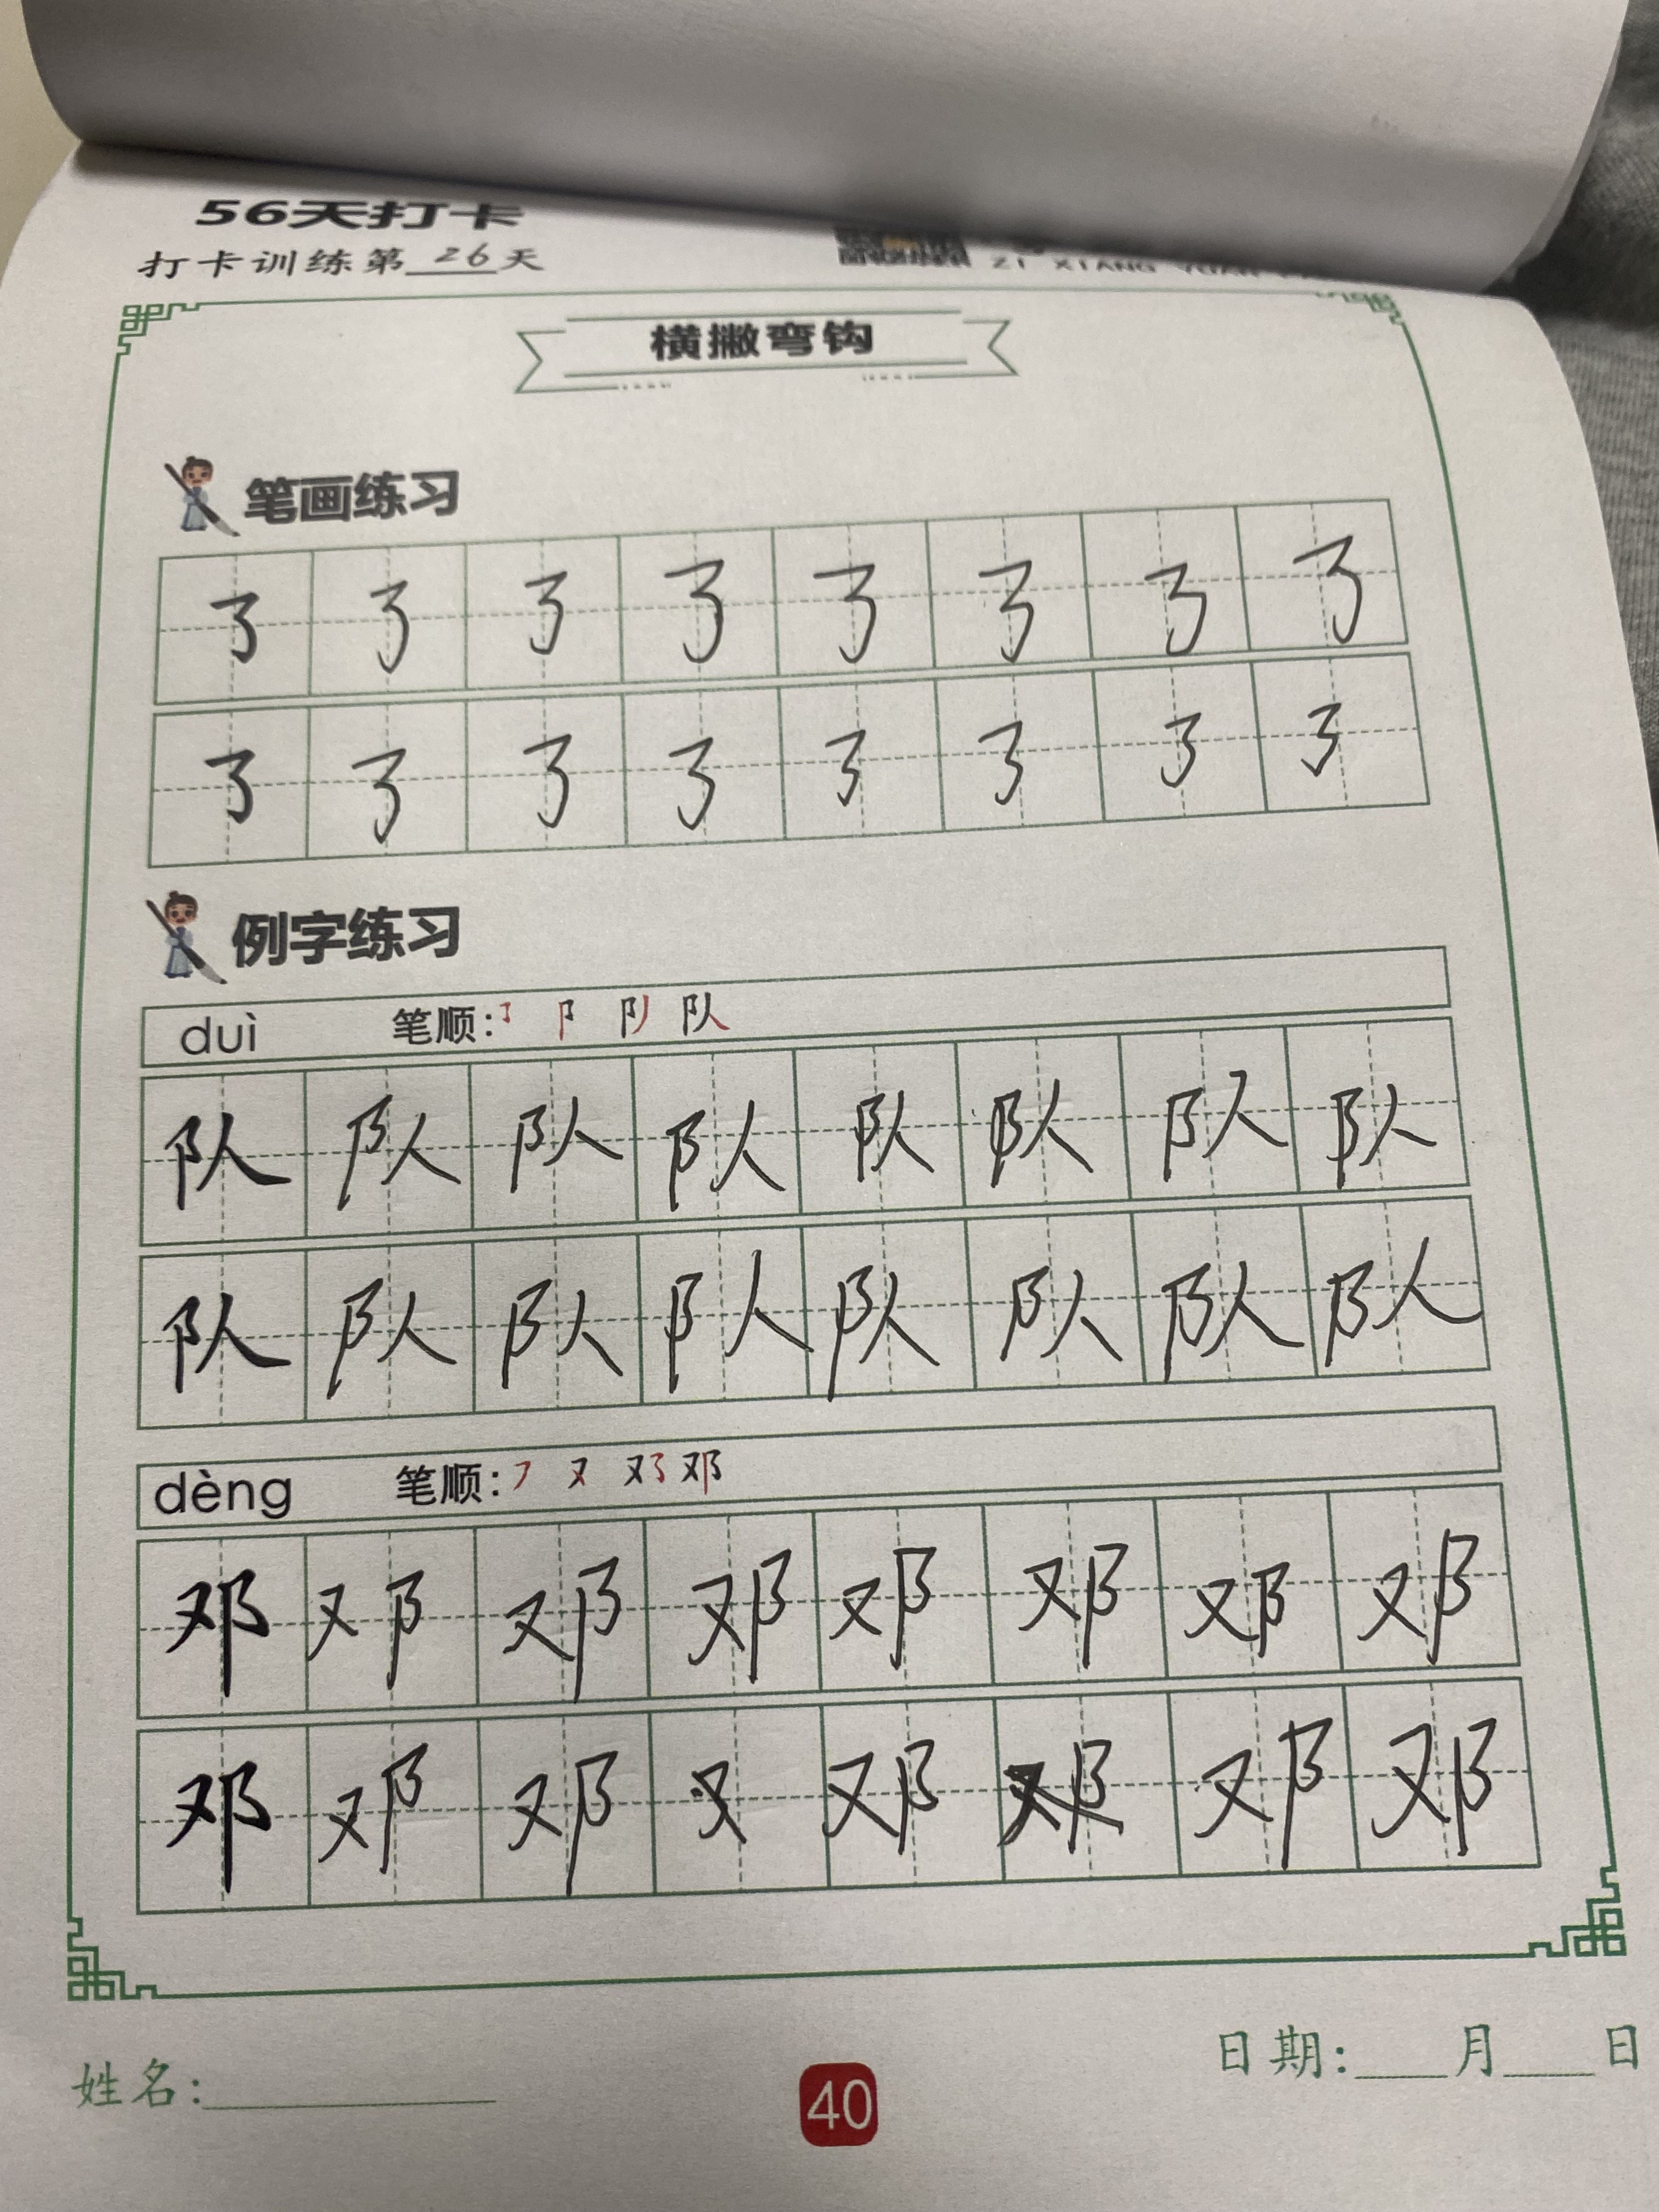 56天打卡
打卡训练第26天
横撇弯钩
笔画练习
㇌ ㇌ ㇌ ㇌ ㇌ ㇌ ㇌ ㇌
㇌ ㇌ ㇌ ㇌ ㇌ ㇌ ㇌ ㇌
例字练习
duì 笔顺: 队
队 队 队 队 队 队 队 队
队 队 队 队 队 队 队 队
dèng 笔顺: 又 邓
邓 邓 邓 邓 邓 邓 邓 邓
邓 邓 邓 又 邓 邓 邓 邓
姓名:
40
日期: 月 日